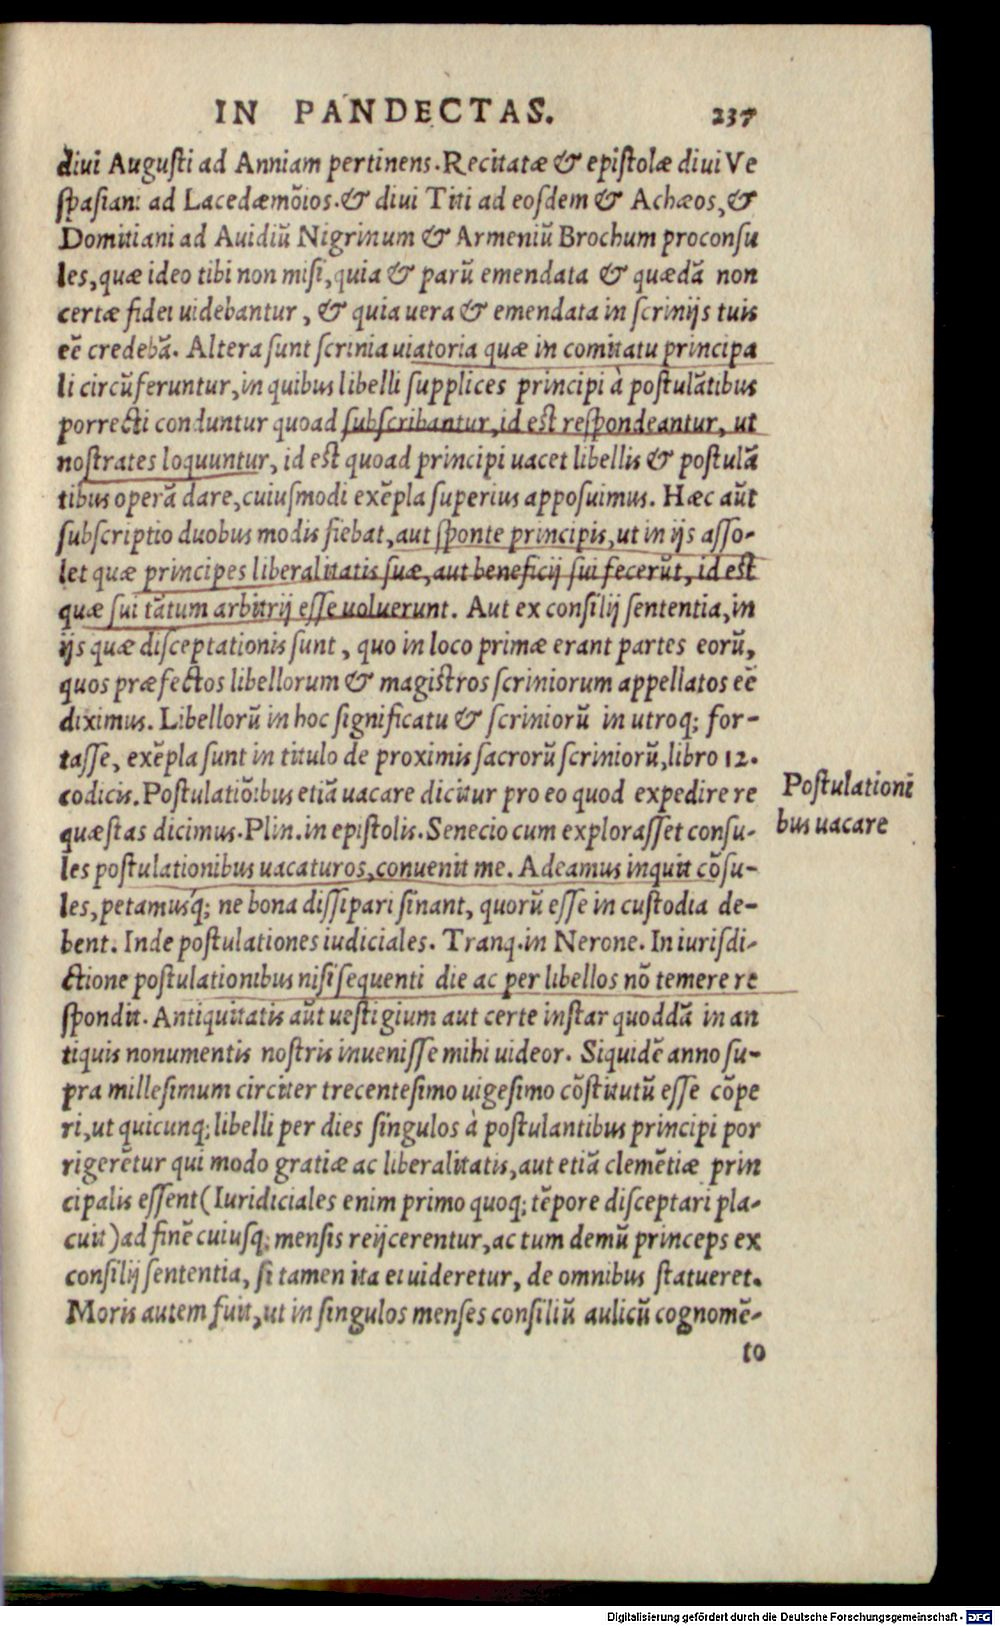 IN PANDECTAS. 237
divi Augusti ad Anniam pertinens. Recitatæ & epistolæ divi Ve
spasiani ad Lacedæmõios. & divi Titi ad eosdem & Achæos, &
Domitiani ad Auidiũ Nigrinum & Armeniũ Brochum proconsu
les, quæ ideo tibi non misi, quia & parũ emendata & quædã non
certæ fidei uidebantur, & quia vera & emendata in scrinijs tuis
eē credebã. Altera sunt scrinia uiatoria quæ in comitatu principa
li circũferuntur, in quibus libelli supplices principi à postulãtibus
porrecti conduntur quoad subscribantur, id est respondeantur, ut
nostrates loquuntur, id est quoad principi uacet libellis & postulã
tibus operã dare, cuiusmodi exēpla superius apposuimus. Hæc aũt
subscriptio duobus modis fiebat, aut sponte principis, ut in ijs asso-
let quæ principes liberalitatis suæ, aut beneficij sui fecerũt, id est
quæ sui tãtum arbitrij esse uoluerunt. Aut ex consilij sententia, in
ijs quæ disceptationis sunt, quo in loco primæ erant partes eorũ,
quos præfectos libellorum & magistros scriniorum appellatos eē
diximus. Libellorũ in hoc significatu & scriniorũ in utroq; for-
tasse, exēpla sunt in titulo de proximis sacrorũ scriniorũ, libro 12.
codicis. Postulatiõibus etiã uacare dicitur pro eo quod expedire re
quæstas dicimus. Plin. in epistolis. Senecio cum explorasset consu-
les postulationibus uacaturos, conuenit me. Adeamus inquit cõsu-
les, petamusq́; ne bona dissipari sinant, quorũ esse in custodia de-
bent. Inde postulationes iudiciales. Tranq. in Nerone. In iurisdi-
ctione postulationibus nisi sequenti die ac per libellos nõ temere re
spondit. Antiquitatis aũt uestigium aut certe instar quoddã in an
tiquis nonumentis nostris inuenisse mihi uideor. Siquidē anno su-
pra millesimum circiter trecentesimo uigesimo cõstitutũ esse cõpe
ri, ut quicunq; libelli per dies singulos à postulantibus principi por
rigerētur qui modo gratiæ ac liberalitatis, aut etiã clemētiæ prin
cipalis essent (Iuridiciales enim primo quoq; tēpore disceptari pla-
cuit) ad finē cuiusq; mensis reijcerentur, ac tum demũ princeps ex
consilij sententia, si tamen ita ei uideretur, de omnibus statueret.
Moris autem fuit, ut in singulos menses consiliũ aulicũ cognomē-
to
Postulationi
bus uacare
Digitalisierung gefördert durch die Deutsche Forschungsgemeinschaft - DFG